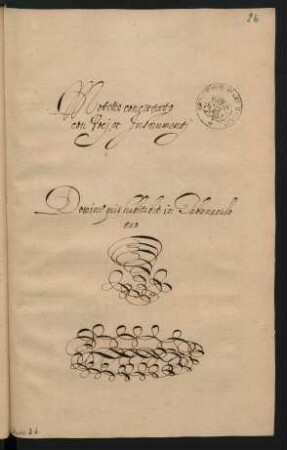 26
Moteto concertato
con Voci et Instrumenti
Domine quis habitabit in Tabernaculo
tuo